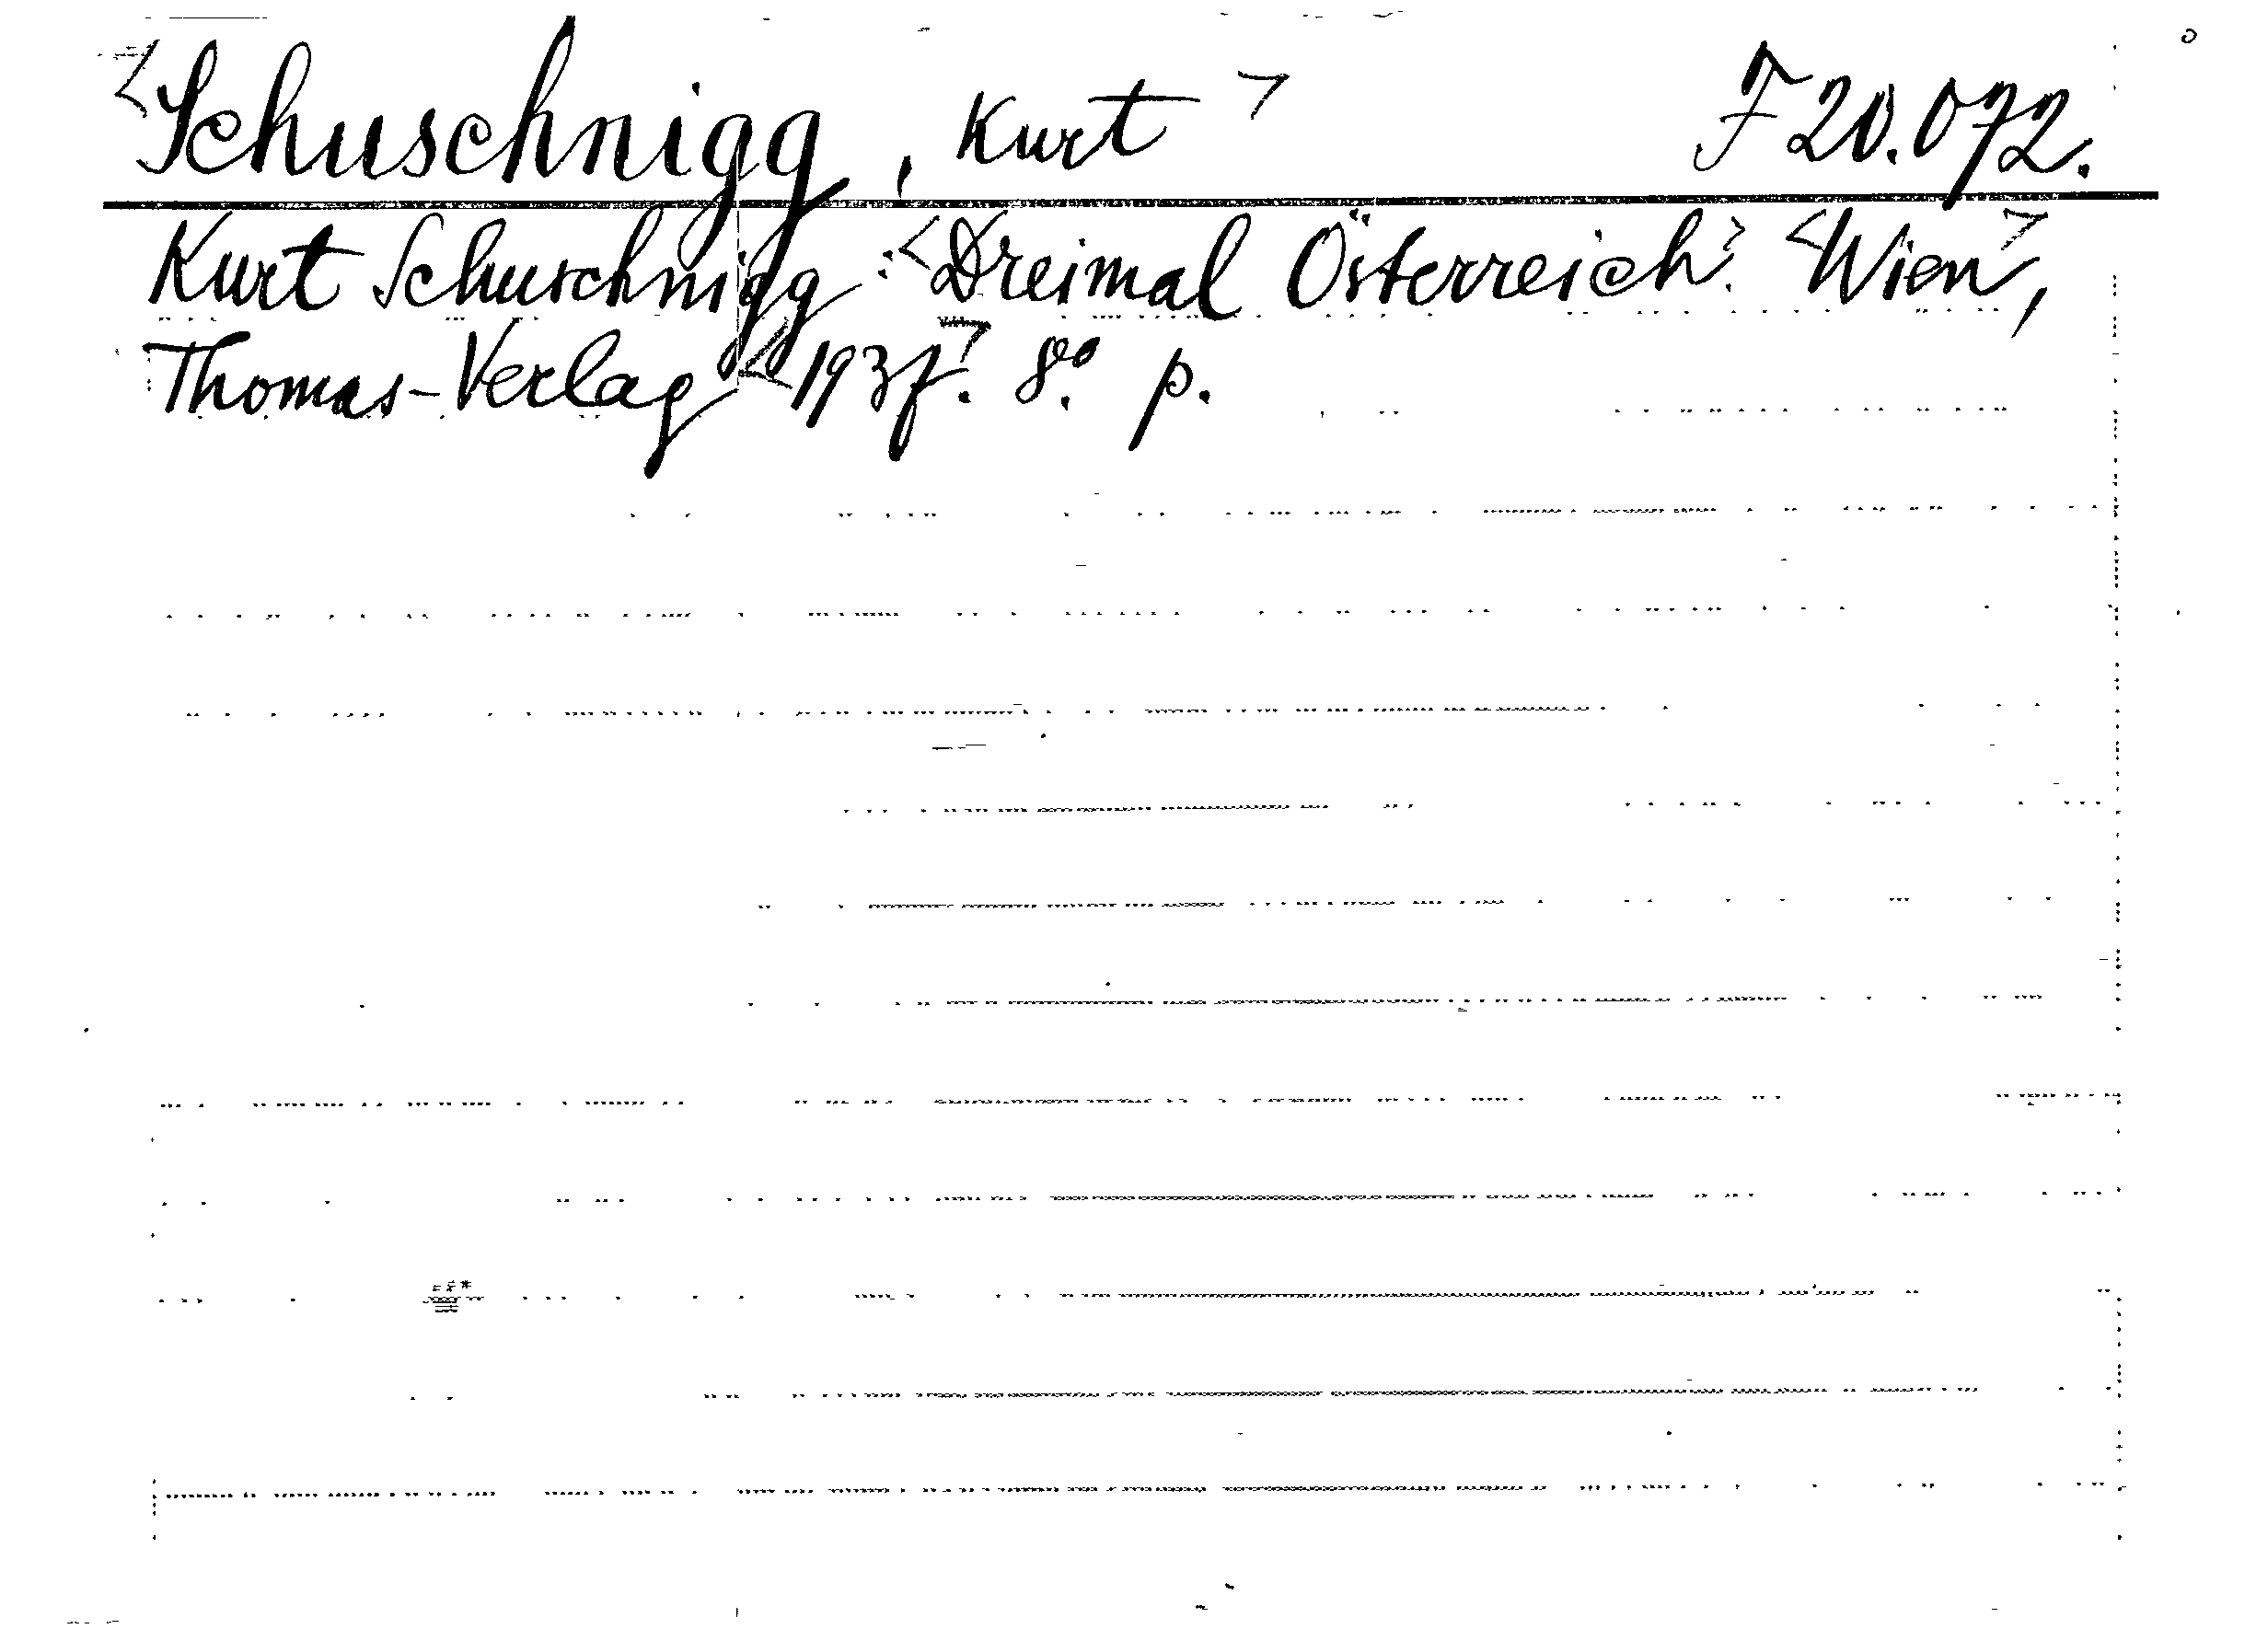 <Schuschnigg, Kurt> F 20.072.
Kurt Schuschnigg: <Dreimal Österreich>. <Wien>,
Thomas-Verlag <1937>. 8º. p.